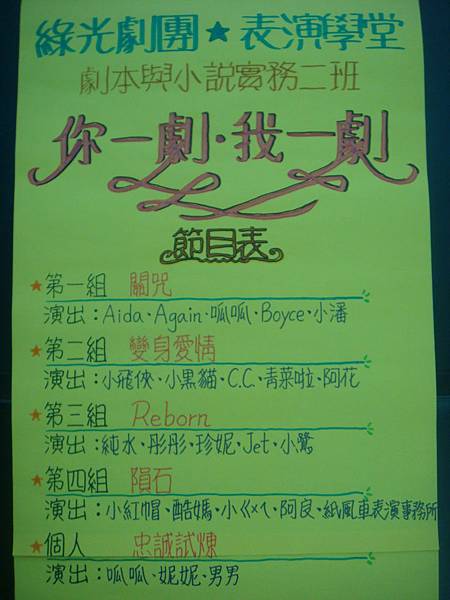 綠光劇團★表演學堂
劇本與小說實務二班
你一劇·我一劇
節目表
★第一組 關咒
演出:Aida、Again、呱呱、Boyce、小潘
★第二組 變身愛情
演出:小飛俠、小黑貓、C.C.、青菜啦、阿花
★第三組 Reborn
演出:純水、彤彤、珍妮、Jet、小鷺
★第四組 隕石
演出:小紅帽、酷媽、小ㄍㄨㄟ、阿良、紙風車表演事務所
★個人 忠誠試煉
演出:呱呱、妮妮、男男